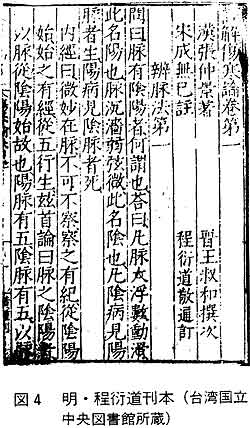 註解傷寒論卷第一
漢張仲景著　晉王叔和撰次
宋成無已註　程衍道敬通訂
辨脉法第一
問曰脉有陰陽者何謂也荅曰凡脉大浮數動滑
此名陽也脉沉濇弱弦微此名陰也凡陰病見陽
脉者生陽病見陰脉者死
内經曰微妙在脉不可不察察之有紀從陰陽
始始之有經從五行生兹首論曰脉之陰陽
以脉從陰陽始故也陽脉有五陰脉有五以脉
図4　明・程衍道刊本（台湾国立
中央図書館所蔵）